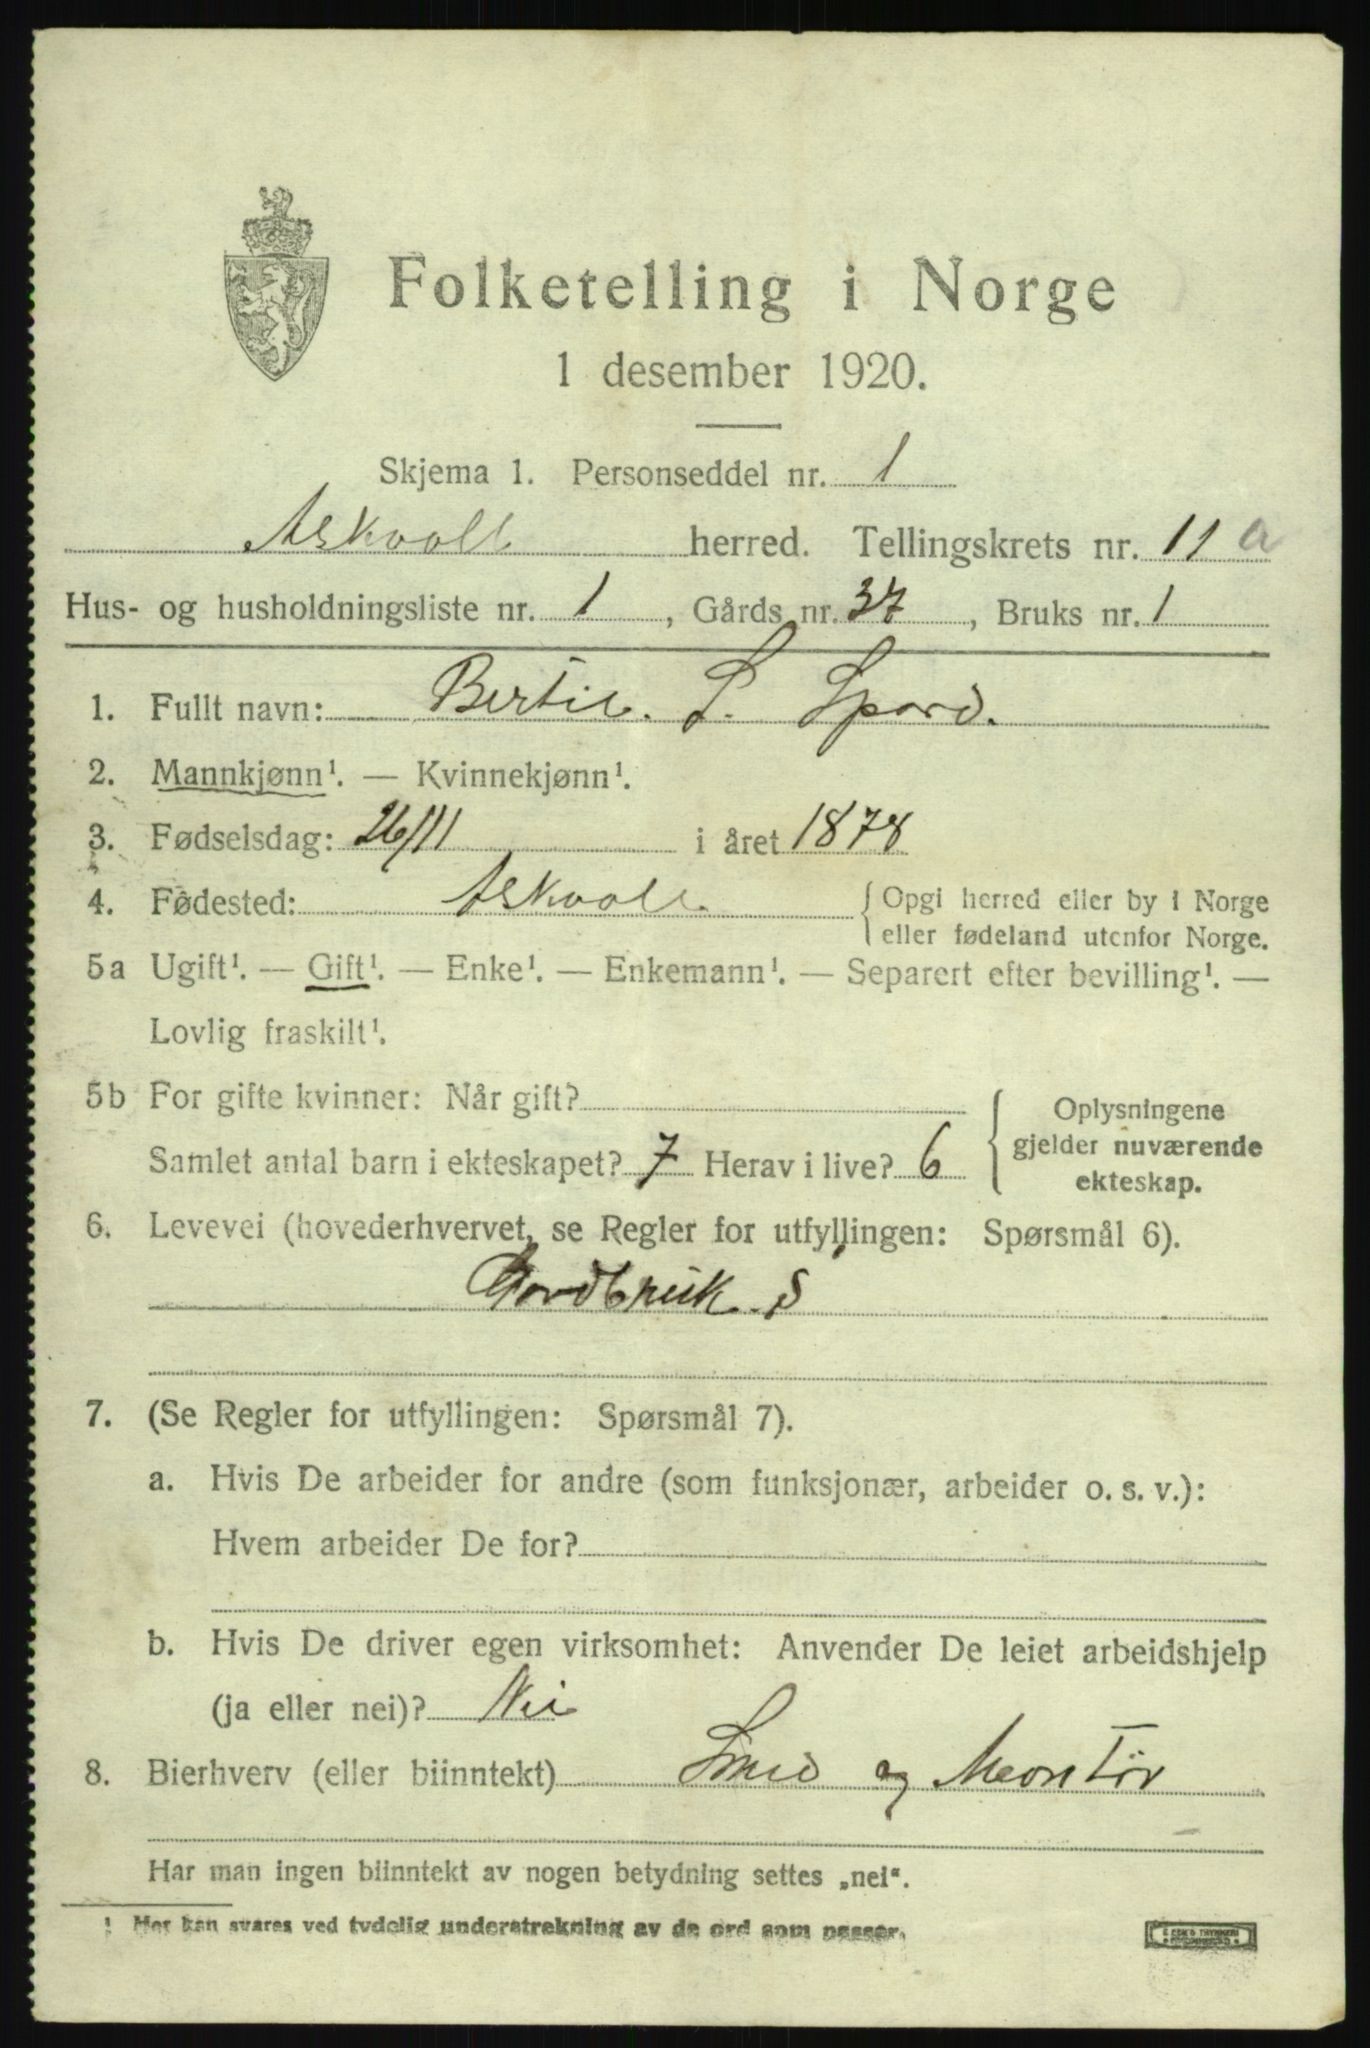 Folketelling i Norge
1 desember 1920.
Skjema 1. Personseddel nr. 1
Askvoll herred. Tellingskrets nr. 11 a
Hus- og husholdningsliste nr. 1, Gårds nr. 37, Bruks nr. 1
1. Fullt navn: Bertil. S. Spord.
2. Mannkjønn¹. — Kvinnekjønn¹.
3. Fødselsdag: 26/11 i året 1878
4. Fødested: Askvoll { Opgi herred eller by i Norge
eller fødeland utenfor Norge.
5a Ugift¹. — Gift¹. — Enke¹. — Enkemann¹. — Separert efter bevilling¹. —
Lovlig fraskilt¹.
5b For gifte kvinner: Når gift?
Samlet antal barn i ekteskapet? 7 Herav i live? 6
Oplysningene
gjelder nuværende
ekteskap.
6. Levevei (hovederhvervet, se Regler for utfyllingen: Spørsmål 6).
Gordbruk. S
7. (Se Regler for utfyllingen: Spørsmål 7).
a. Hvis De arbeider for andre (som funksjonær, arbeider o. s. v.):
Hvem arbeider De for?
b. Hvis De driver egen virksomhet: Anvender De leiet arbeidshjelp
(ja eller nei)? Nei
8. Bierhverv (eller biinntekt) Smed og Montør
Har man ingen biinntekt av nogen betydning settes „nei“.
¹ Her kan svares ved tydelig understrekning av de ord som passer.